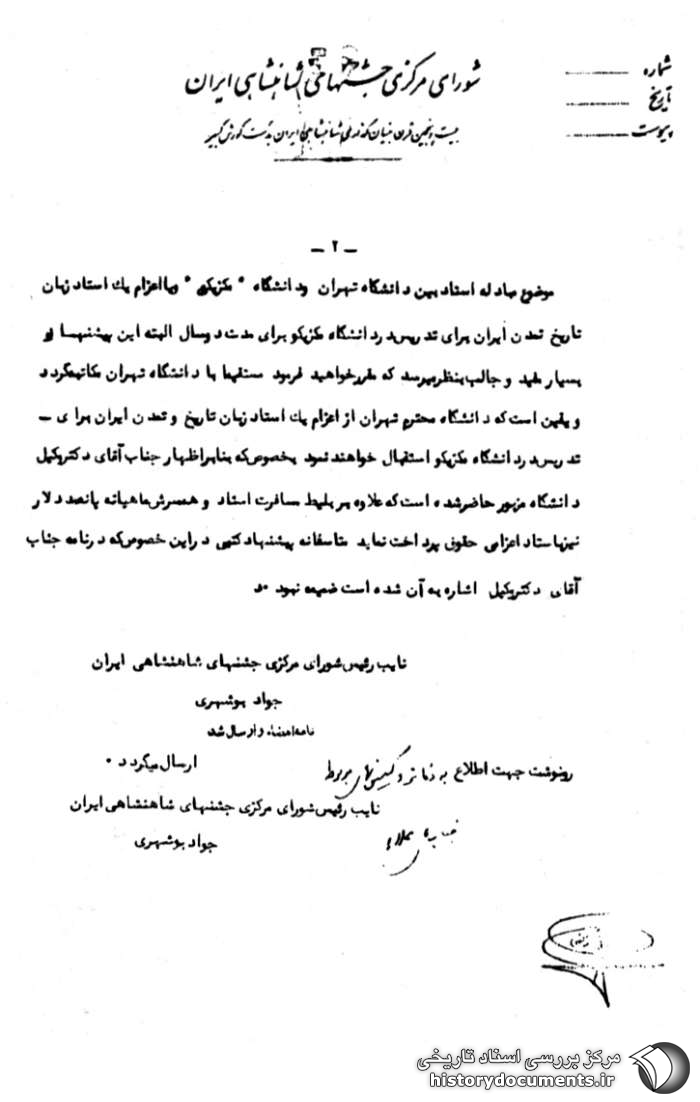 شماره
تاریخ
پیوست
شورای مرکزی جشنهای شاهنشاهی ایران
بیست و پنجمین قرن بنیان گذاری شاهنشاهی ایران بدست کورش کبیر
ـ ۲ ـ
موضوع مبادله استاد بین دانشگاه تهران ودانشگاه " مکزیکو " ویا اعزام یك استاد زبان
تاریخ تمدن ایران برای تدریس در دانشگاه مکزیکو برای مدت دوسال البته این پیشنهاد
بسیار مفید و جالب بنظر میرسد که مقرر خواهید فرمود مستقیما با دانشگاه تهران مکاتبه گردد
و یقین است که دانشگاه محترم تهران از اعزام یك استاد زبان تاریخ و تمدن ایران برای ـ
تدریس در دانشگاه مکزیکو استقبال خواهند نمود بخصوص که بنابر اظهار جناب آقای دکتر یکیل
دانشگاه مزبور حاضر شده است که علاوه بر بلیط مسافرت استاد و همسرش ماهیانه پانصد دلار
نیز باستاد اعزامی حقوق پرداخت نماید متاسفانه پیشنهاد کتبی در این خصوص که در نامه جناب
آقای دکتر یکیل اشاره به آن شده است ضمیمه نبود
نایب رئیس شورای مرکزی جشنهای شاهنشاهی ایران
جواد بوشهری
نامه امضاء و ارسال شد
رونوشت جهت اطلاع به دفاتر و کمیسیونهای مربوط ارسال میگردد ۰
نایب رئیس شورای مرکزی جشنهای شاهنشاهی ایران
جواد بوشهری
مرکز بررسی اسناد تاریخی
historydocuments.ir